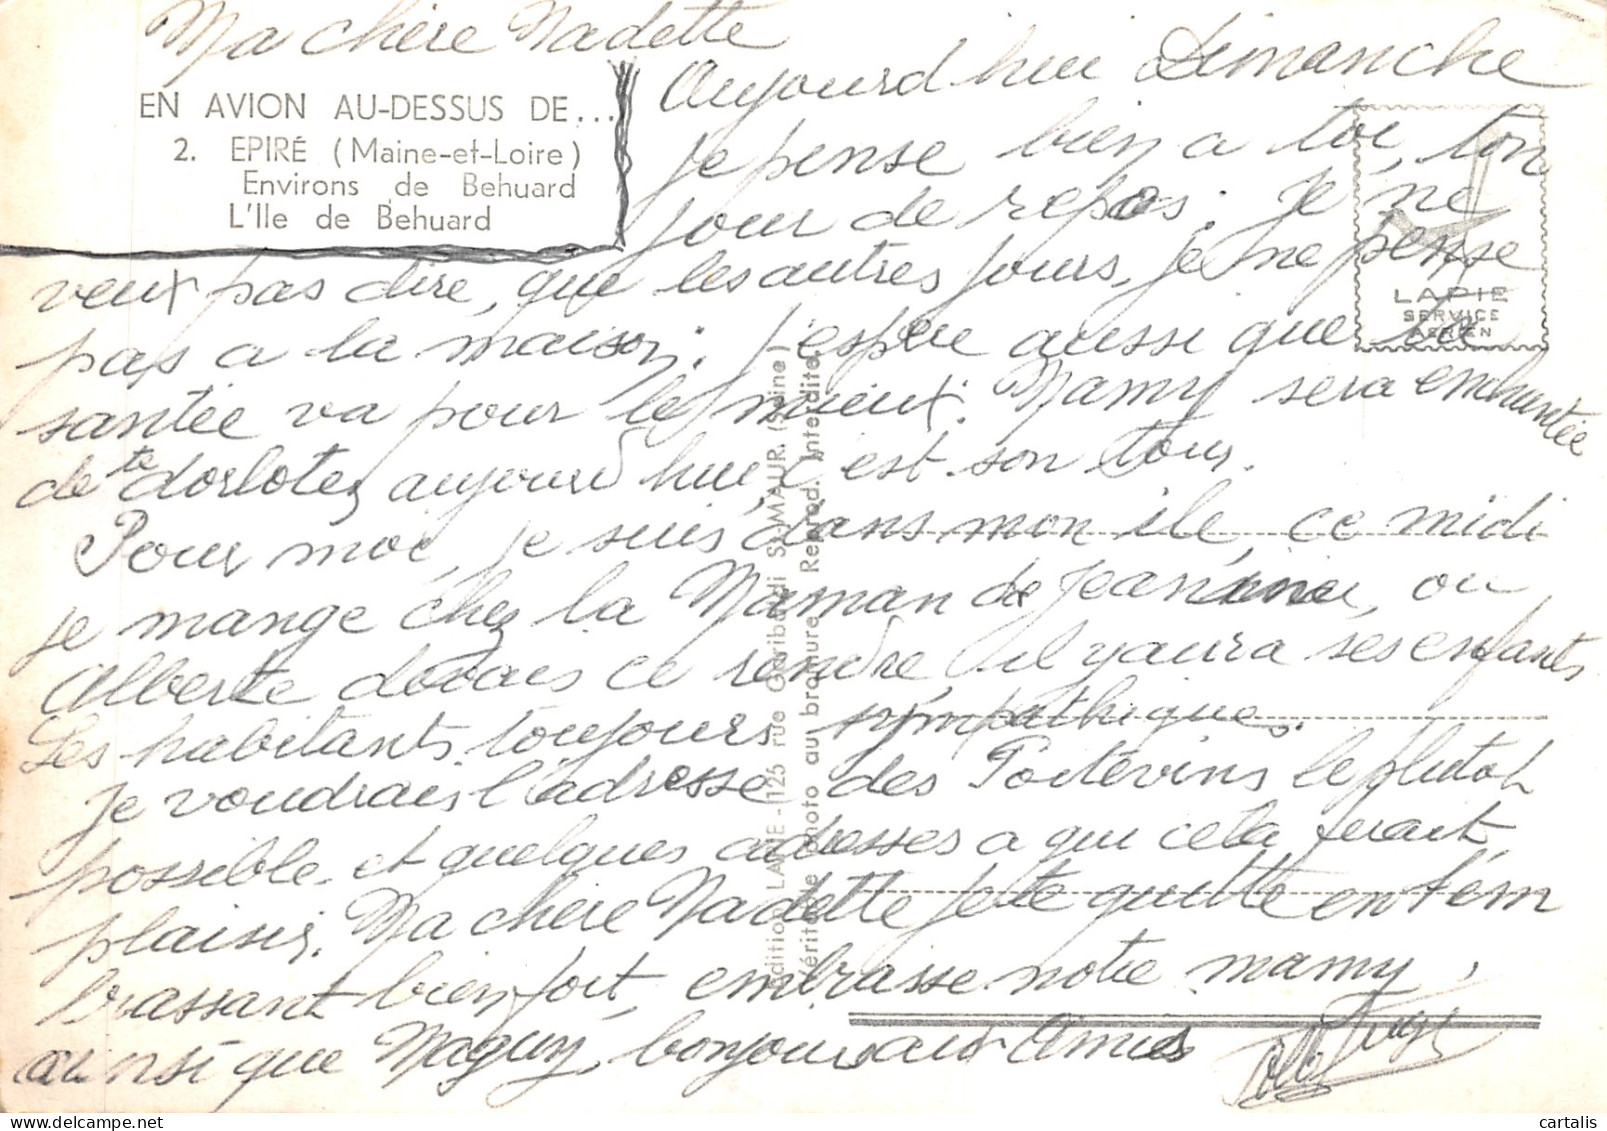 Ma chère Nadette
Aujourd hui Dimanche
EN AVION AU-DESSUS DE...
2. EPIRÉ (Maine-et-Loire)
Environs de Behuard
L'Ile de Behuard
je pense bien a toi, ton
jour de repos. Je ne
veux pas dire, que les autres jours, je ne pense
pas a la maison. J'espère aussi que ta
santée va pour le mieux. Mamy sera enchantée
de te dorlotez aujourd hui, c est son tour.
Pour moi, je suis dans mon ile, ce midi
je mange chez la Maman de Jeannine, ou
Alberte devais ce rendre, il y aura ses enfants
Les habitants toujours sympathique.
Je voudrais l'adresse des Poitevins le plutot
possible et quelques adresses a qui cela ferait
plaisir. Ma chère Nadette je te quitte en t'em
brassant bien fort, embrasse notre mamy,
ainsi que Maguy, bonjour aux Amies
LAPIE
SERVICE
AERIEN
Editions LAPIE - 125 rue Garibaldi St-MAUR. (Seine)
Véritable photo au bromure Reprod. Interdite.
cartalis